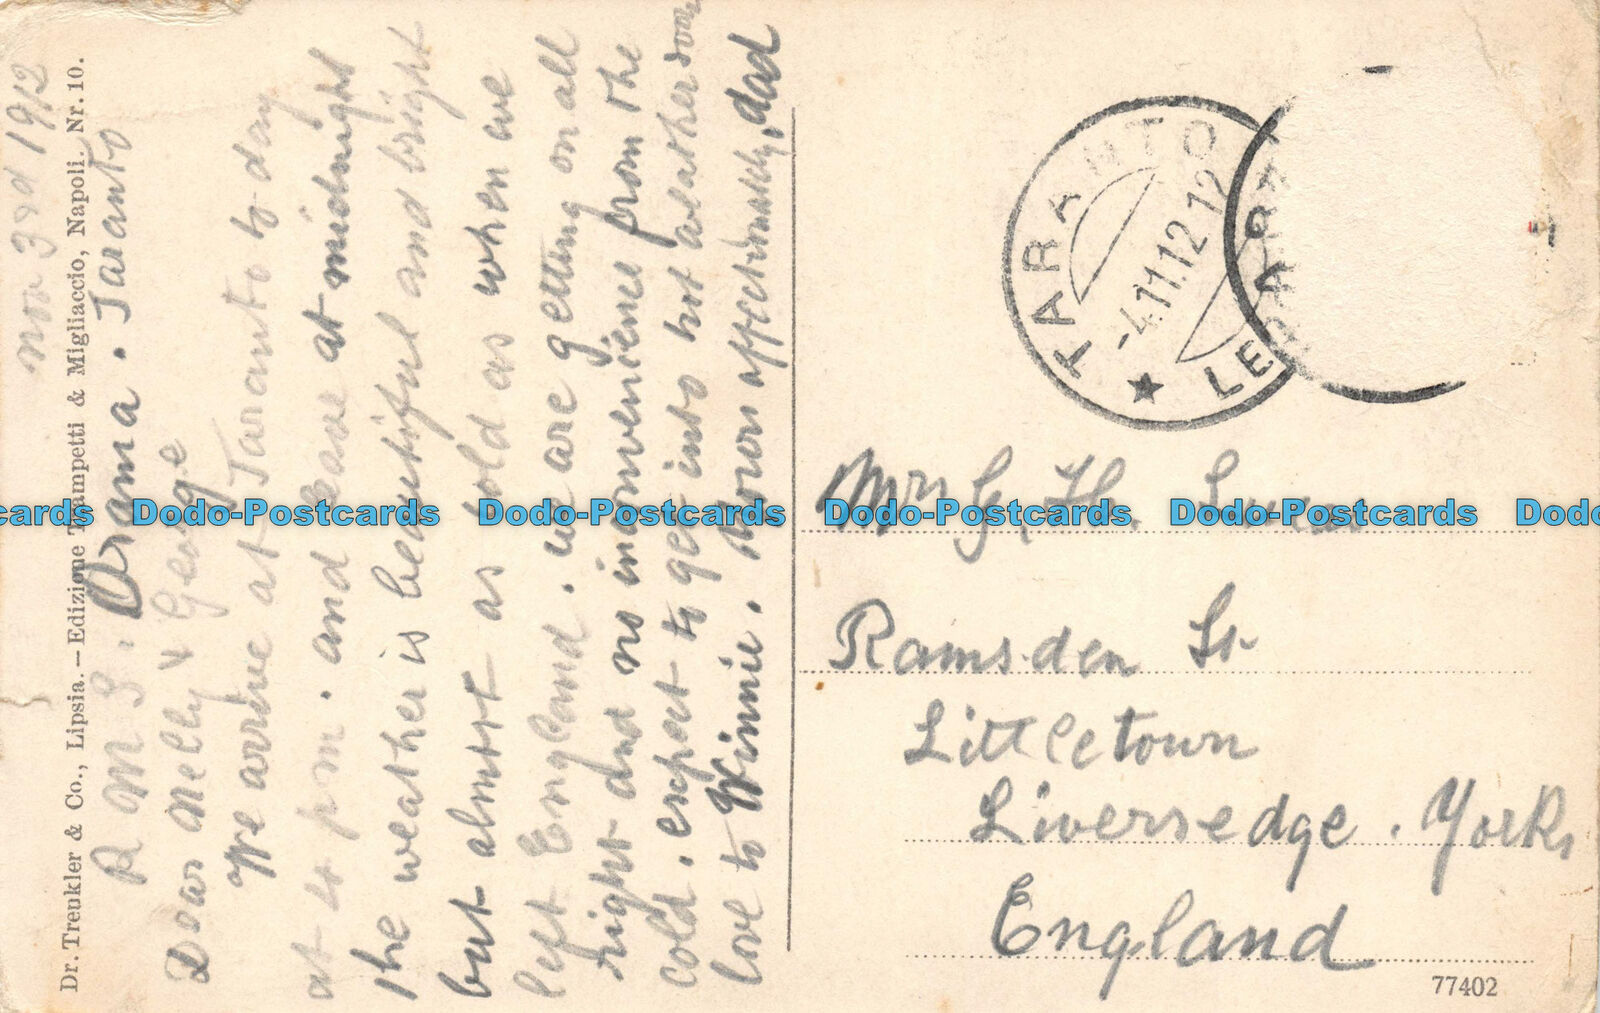 Nov 3rd 1912
R M S. Orama. Taranto
Dear Nelly & George
We arrive at Taranto to day
at 4 pm. and leave at midnight
the weather is beautiful and bright
but almost as cold as when we
left England. we are getting on all
right and no inconvenience from the
cold. expect to get into hot weather soon
love to Winnie. Yours affectionately, dad
Dr. Trenkler & Co., Lipsia. — Edizione Trampetti & Migliaccio, Napoli. Nr. 10.
TARANTO
-4.11.12 12
LE
Mrs G. H.
Ramsden St
Littletown
Liversedge. Yorks
England
77402
Dodo-Postcards Dodo-Postcards Dodo-Postcards Dodo-Postcards